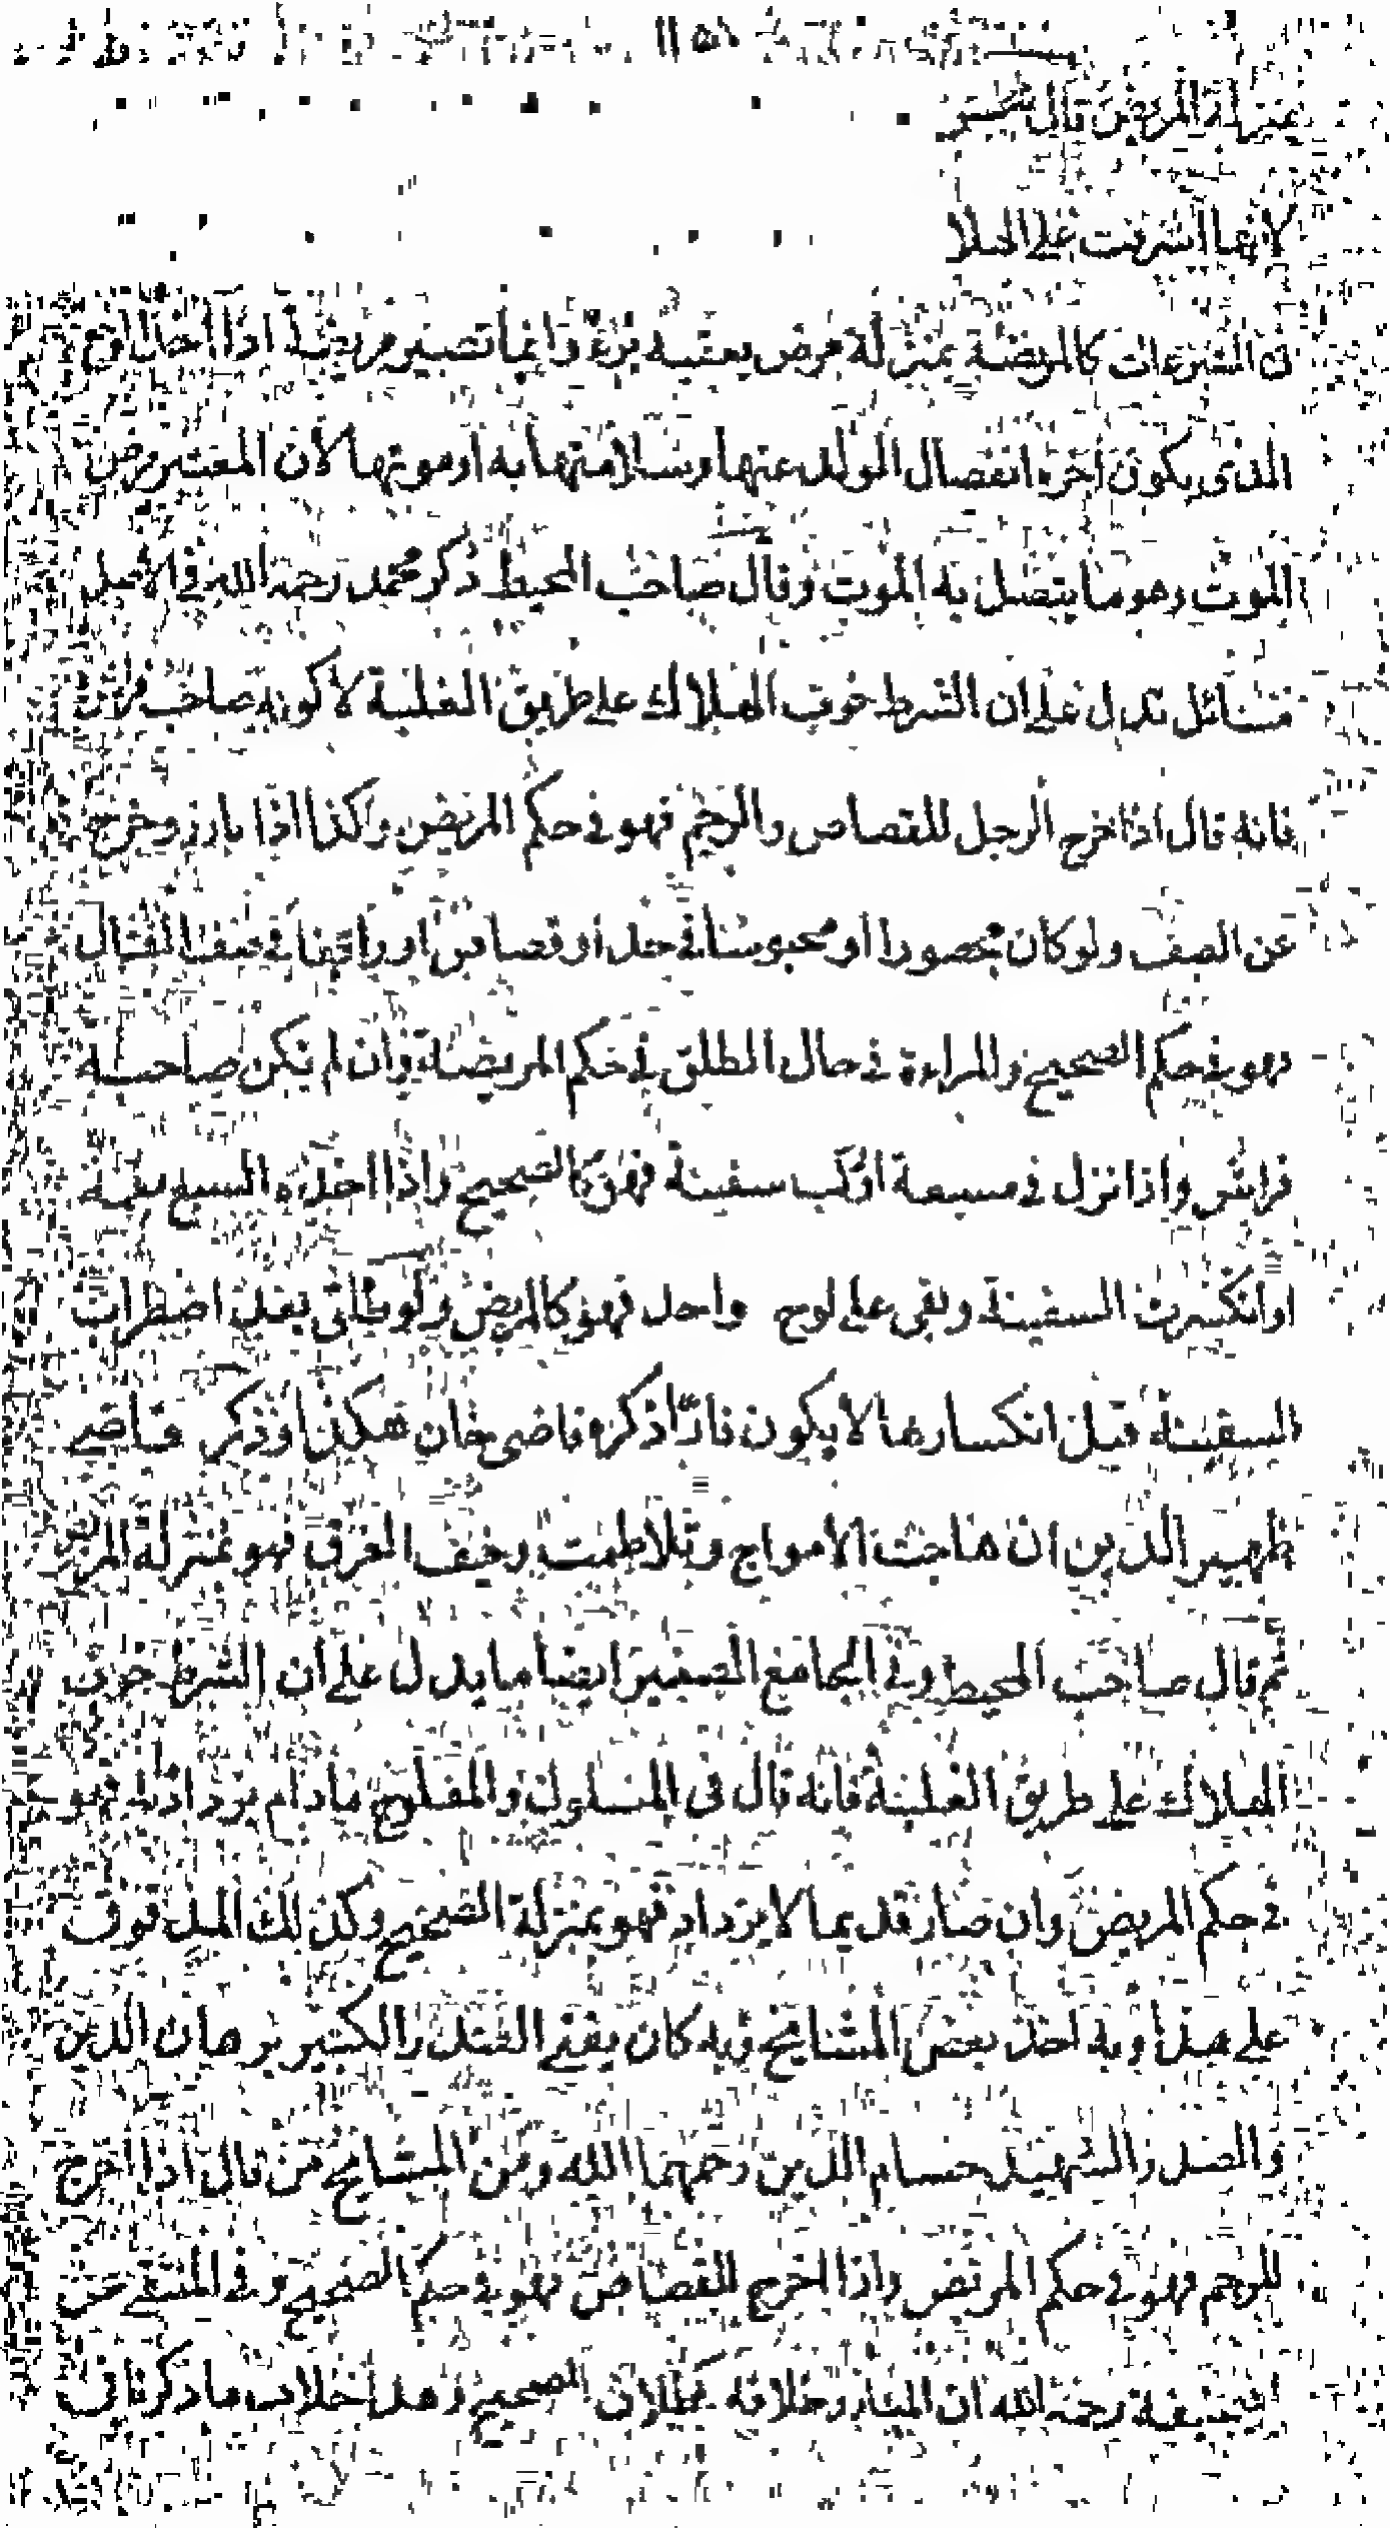 بمنزلة المريض قال
لانها اشرفت على الهلا
فى المشرعات كالمريضة بمنزلة مرض يعقبه برء دائما تصير مريضة اذا اخذها الوجع
الذى يكون آخره انفصال الولد عنها وسلامتها به او موتها لان المعتبر مرض
الموت وهو ما يتصل به الموت وقال صاحب المحيط ذكر محمد رحمة الله فى الاصل
مسائل تدل على ان الشرط خوف الهلاك على طريق الغلبة لا كونه صاحب فراش
فانه قال اذا اخرج الرجل للقصاص والرجم فهو فى حكم المريض وكذا اذا بارز وخرج
عن الصف ولو كان محصورا او محبوسا فى حد او قصاص او واقفا فى صف القتال
فهو فى حكم الصحيح والمراءة فى حال الطلق فى حكم المريضة وان لم تكن صاحبة
فراش واذا نزل فى مسبعة او ركب سفينة فهو كالصحيح واذا اخذه السبع بفمه
او انكسرت السفينة وبقى على لوح واحد فهو كالمريض ولو طلق بعد اضطراب
السفينة قبل انكسارها لا يكون فارّا ذكره قاضى خان هكذا وذكر قاضى
ظهير الدين ان هاجت الامواج وتلاطمت وخيف الغرق فهو بمنزلة المريض
ثم قال صاحب المحيط وفى الجامع الصغير ايضا ما يدل على ان الشرط خوف
الهلاك على طريق الغلبة فانه قال فى المسلول والمفلوج مادام يزداد به فهو
فى حكم المريض وان صار قديما لا يزداد فهو بمنزلة الصحيح وكذلك المدقوق
على هذا وبه اخذ بعض المشايخ وبه كان يفتى الصدر الكبير برهان الدين
والصدر الشهيد حسام الدين رحمهما الله ومن المشايخ من قال اذا اخرج
للرجم فهو فى حكم المريض واذا اخرج للقصاص فهو فى حكم الصحيح وفى المنتقى عن
ابى حنيفة رحمة الله ان طلاقه كطلاق الصحيح وهذا خلاف ما ذكرنا فى